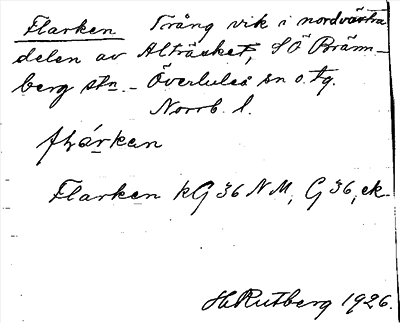 Flarken Trång vik i nordvästra
delen av Alträsket, SÖ Bränn-
berg stn. - Överluleå sn o. tg.
Norrb. l.
Flarken kG 36 NM, G 36, ek.
H. Rutberg 1926.